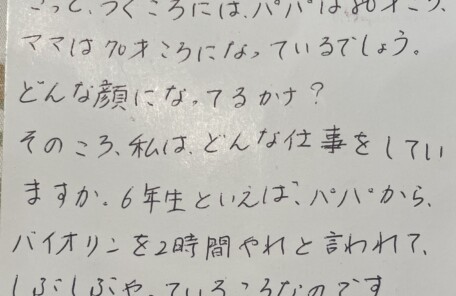 きっと、つくころには、パパは80才ころ、
ママは70才ころになっているでしょう。
どんな顔になってるかナ?
そのころ、私は、どんな仕事をしてい
ますか。6年生といえば、パパから、
バイオリンを2時間やれと言われて、
しぶしぶやっているころなのです